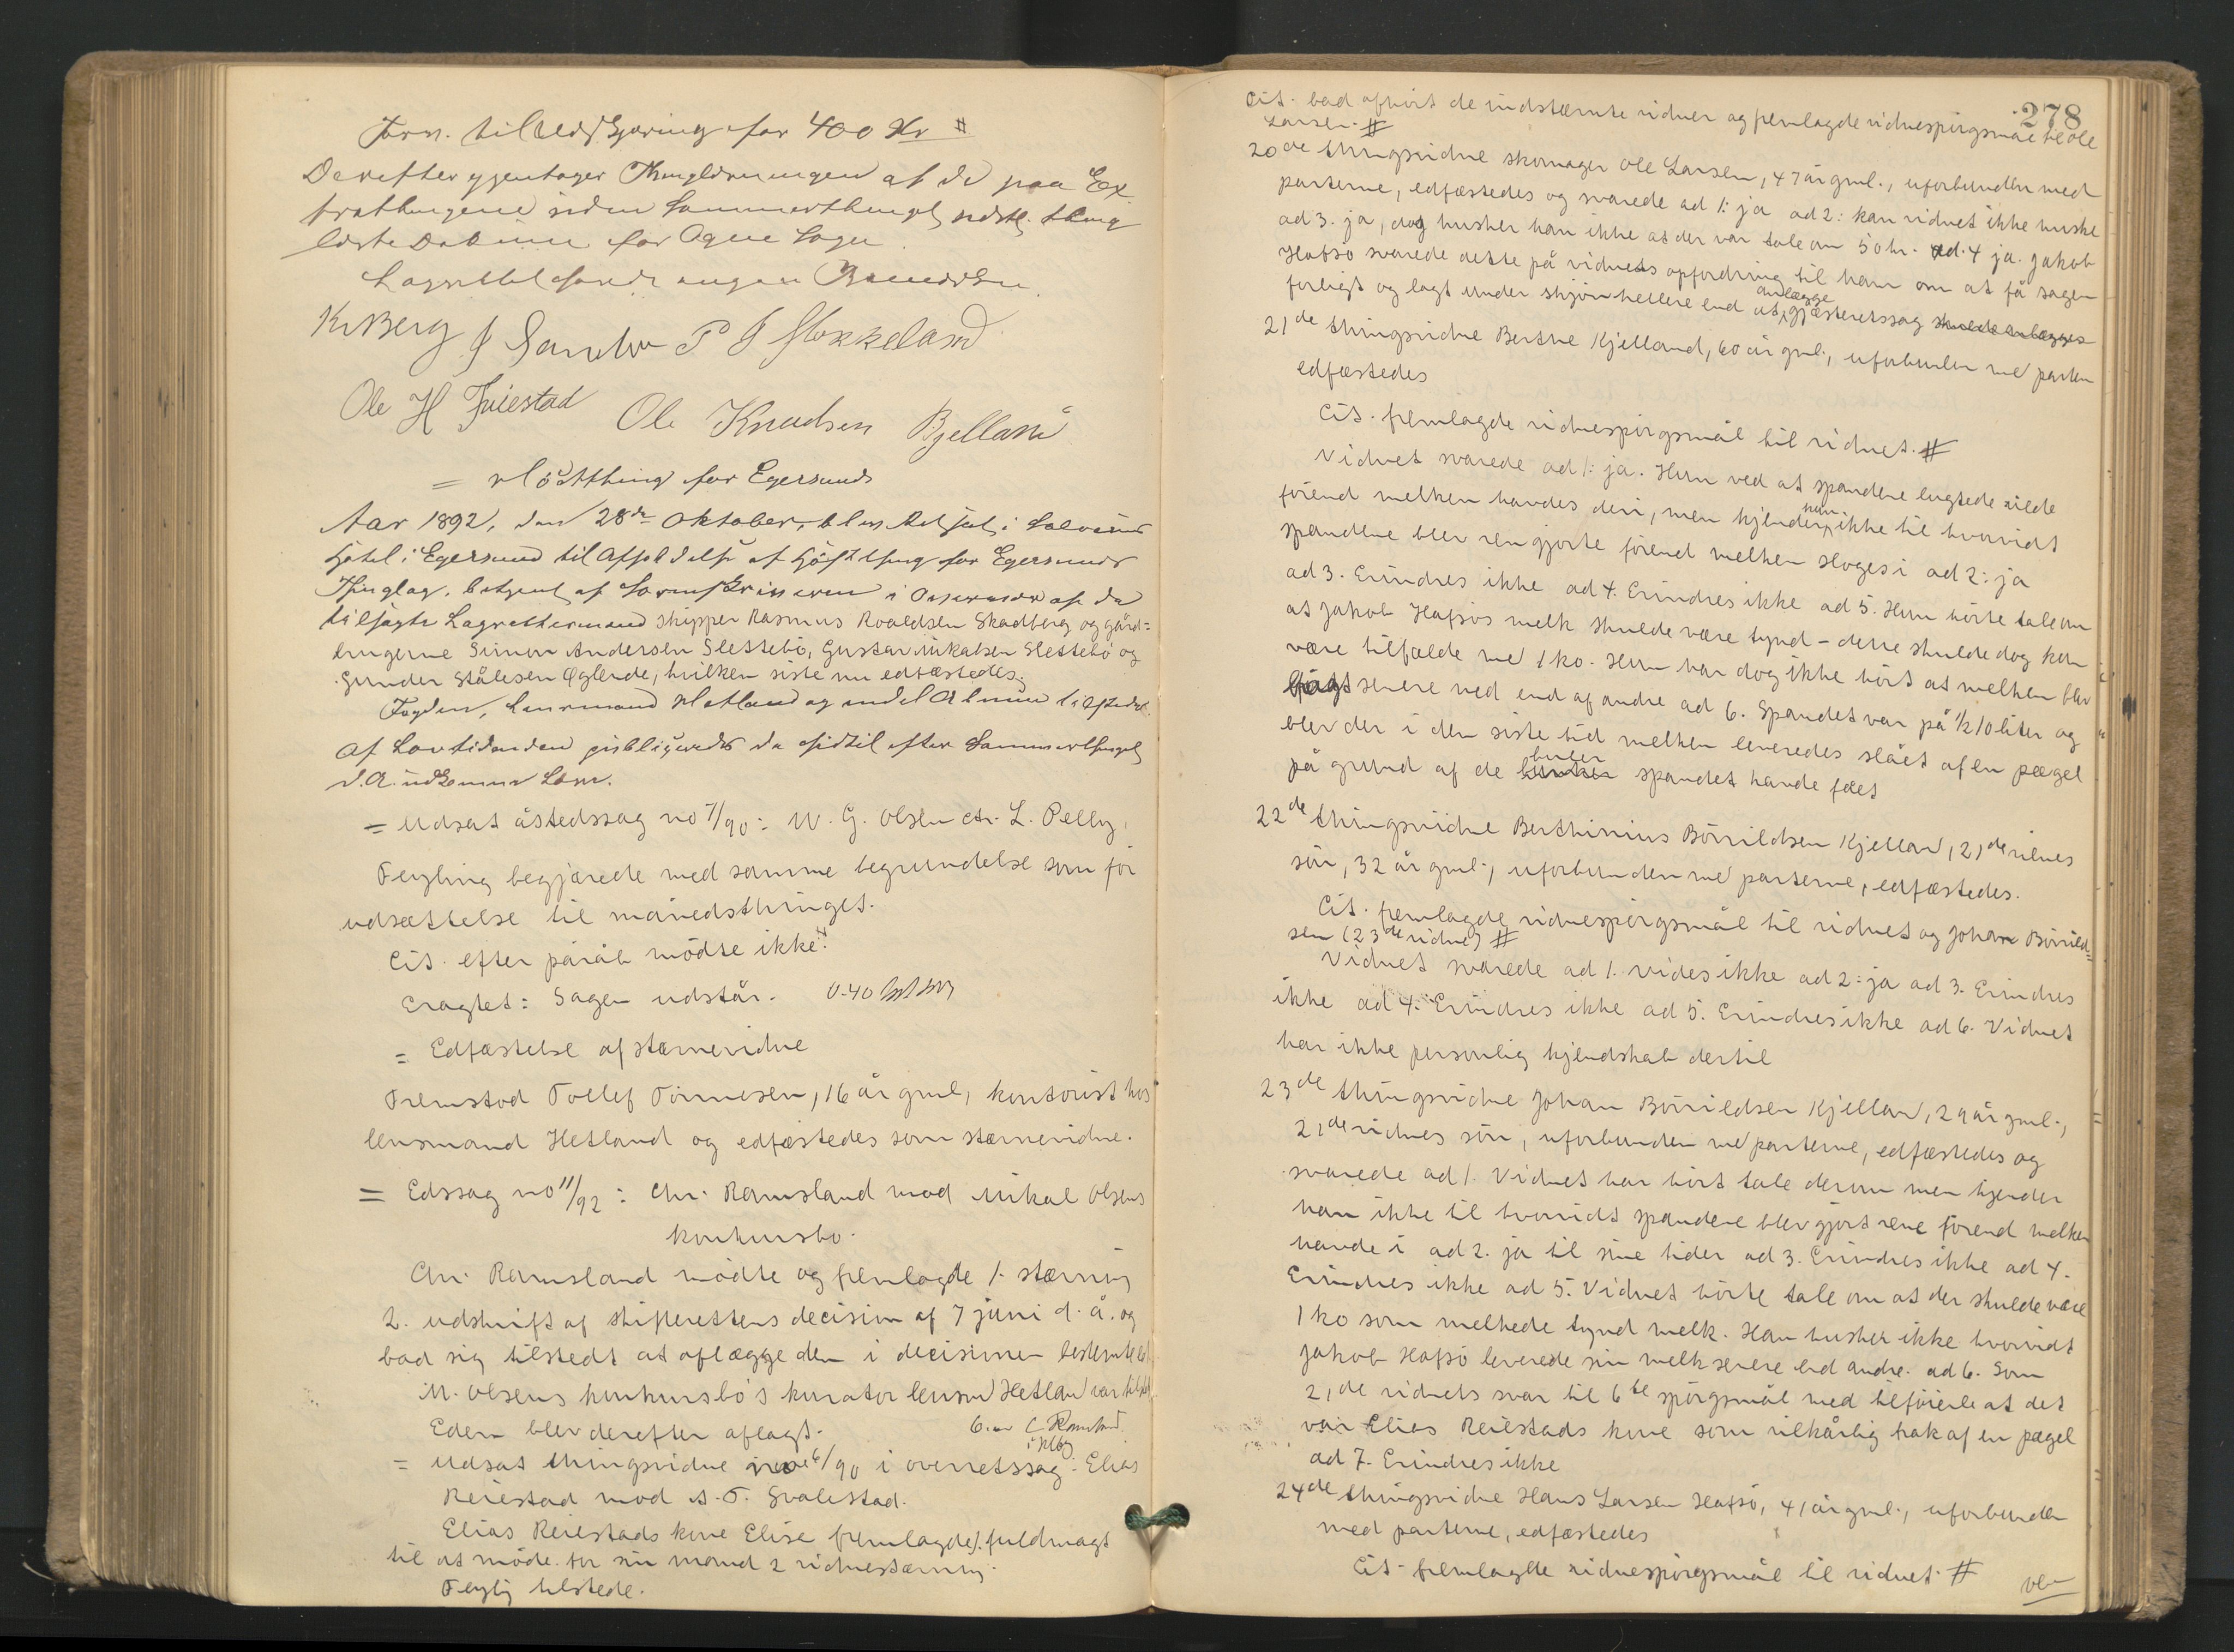 Forsv. til Udskjæring for 400 Kr #
Derefter gjentoges Thinglæsningen af de paa Ex
trathingene siden Sommerthinget sidstl. thing
læste Dokum. for Ogne Sogn
Lagrettet havde ingen Besværing
K Berg J P J Stokkeland
Ole H Friestad Ole Knudsen Bjelland
= Høstthing for Egersund
Aar 1892, den 28de Oktober, blev Ret sat i Salvesens
Hotel i Egersund til Afholdelse af Høstthing for Egersunds
Thinglag, betjent af Sorenskriveren i Overvær af de
tilsagte Lagrettesmænd skipper Rasmus Roaldsen Skadberg og gård=
brugerne Simon Andersen Slettebø, Gustav Mikalsen Slettebø og
Gunder Stålesen Øglende, hvilken siste nu edfæstedes.
Fogden, Lensmand Hetland og endel Almue tilstede.
Af Lovtidenden publiceredes de hidtil efter Sommerthinget
d. A. udkomne Love.
= Udsat åstedssag no 7/90: W. G. Olsen ctr. L. Pelly,
Feyling begjærede med samme begrundelse som før
udsættelse til månedsthinget.
Cit. efter påråb mødte ikke.
Eragtet: Sagen udstår. 0.40
= Edfæstelse af stævnevidne
Fremstod Tollef Tønnesen, 16 år gml, kontorist hos
lensmand Hetland og edfæstedes som stævnevidne.
= Edssag no 11/92: Chr. Ramsland mod Mikal Olsens
konkursbo.
Chr. Ramsland mødte og fremlagde 1. stævning
2. udskrift af skifterettens decision af 7 juni d. å. og
bad sig tilstedt at aflægge den i decisionen bestemte ed
M. Olsens konkursbo's kurator lensm Hetland var tilst.
Eden blev derefter aflagt.
= Udsat thingsvidne no 6/90 i overretssag: Elias
Reiestad mod A. T. Svalestad.
Elias Reiestads kone Elise fremlagde 1. fuldmagt
til at møde for sin mand 2 vidnestævning.
Feyling tilstede.
278
Cit. bad afhørt de indstævnte vidner og fremlagde vidnespørgsmål til Ole
Larsen. #
20de thingsvidne skomager Ole Larsen, 47 år gml., uforbunden med
parterne, edfæstedes og svarede ad 1: ja ad 2: kan vidnet ikke huske
ad 3. ja, dog husker han ikke at der var tale om 50 kr. ad. 4 ja. Jakob
Hafsø svarede dette på vidnets opfordring til ham om at få sagen
forligt og lagt under skjøn hellere end at anlægge gjesteretssag skulde anlægges
21de thingsvidne Berthe Kjelland, 60 år gml., uforbunden med parterne
edfæstedes
Cit. fremlagde vidnespørgsmål til vidnet. #
Vidnet svarede ad 1: ja. Hun ved at spandene lugtede ilde
førend melken havdes deri, men kjender hun ikke til hvorvidt
spandene blev rengjorte førend melken sloges i ad 2: ja
ad 3. Erindres ikke ad 4. Erindres ikke ad 5. Hun hørte tale om
at Jakob Hafsøs melk skulde være tynd - dette skulde dog kun
være tilfælde med 1 ko. Hun har dog ikke hørt at melken blev
bragt senere ned end af andre ad 6. Spandet var på 1/2 10 liter og
blev der i den siste tid melken leveredes slået af en pægel
på grund af de buler spandet havde fået
22de thingsvidne Berthinius Børrildsen Kjelland, 21de vidnes
søn, 32 år gml., uforbunden med parterne, edfæstedes.
Cit. fremlagde vidnespørgsmål til vidnet og Johan Børrild=
sen (23de vidne) #
Vidnet svarede ad 1. vides ikke ad 2: ja ad 3. Erindres
ikke ad 4. Erindres ikke ad 5. Erindres ikke ad 6. Vidnet
har ikke personlig kjendskab dertil
23de thingsvidne Johan Børrildsen Kjelland, 29 år gml.,
21de vidnes søn, uforbunden med parterne, edfæstedes og
svarede ad 1 Vidnet har hørt tale derom men kjender
han ikke til hvorvidt spandene blev gjort rene førend melken
havde i ad 2. ja til sine tider ad 3. Erindres ikke ad 4.
Erindres ikke ad 5. Vidnet hørte tale om at der skulde være
1 ko som melkede tynd melk. Han husker ikke hvorvidt
Jakob Hafsø leverede sin melk senere end andre. ad 6. Som
21de vidnets svar til 6te spørgsmål med tilføiende at det
var Elias Reiestads kone som vilkårlig trak af en pægel
ad 7. Erindres ikke
24de thingsvidne Hans Larsen Hafsø, 41 år gml., uforbunden
med parterne, edfæstedes
Cit. fremlagde vidnespørgsmål til vidnet #